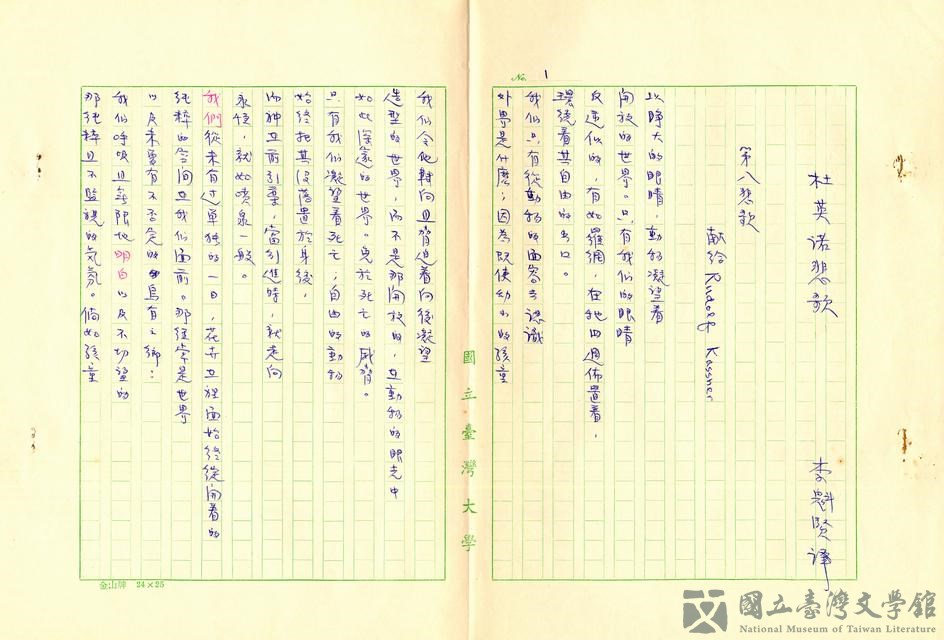 No. 1
杜英諾悲歌
李魁賢譯
第八悲歌
献給 Rudolf Kassner
以睜大的眼睛,動物凝望着
開放的世界。只有我們的眼睛
反逆似的,有如羅網,在牠四週佈置着,
環繞着其自由的出口。
我們只有從動物的面容去認識
外界是什麼;因為既使幼小的孩童
我們令他轉向且脅迫着向後凝望
造型的世界,而不是那開放的,在動物的眼光中
如此深邃的世界。免於死亡的威脅。
只有我們凝望着死亡;自由的動物
始終把其沒落置於身後,
而神在前引導,當引進時,就走向
永恆,就如噴泉一般。
我們從未有过單独的一日,花卉在裡面始終綻開着的
純粹的空間在我們面前。那經常是世界
以及未曾有不否定的烏有之鄉:
我们呼吸且無限地明白以及不切望的
那純粹且不監視的気氛。倘如孩童
國立臺灣大學
金山牌 24×25
國立臺灣文學館
National Museum of Taiwan Literature